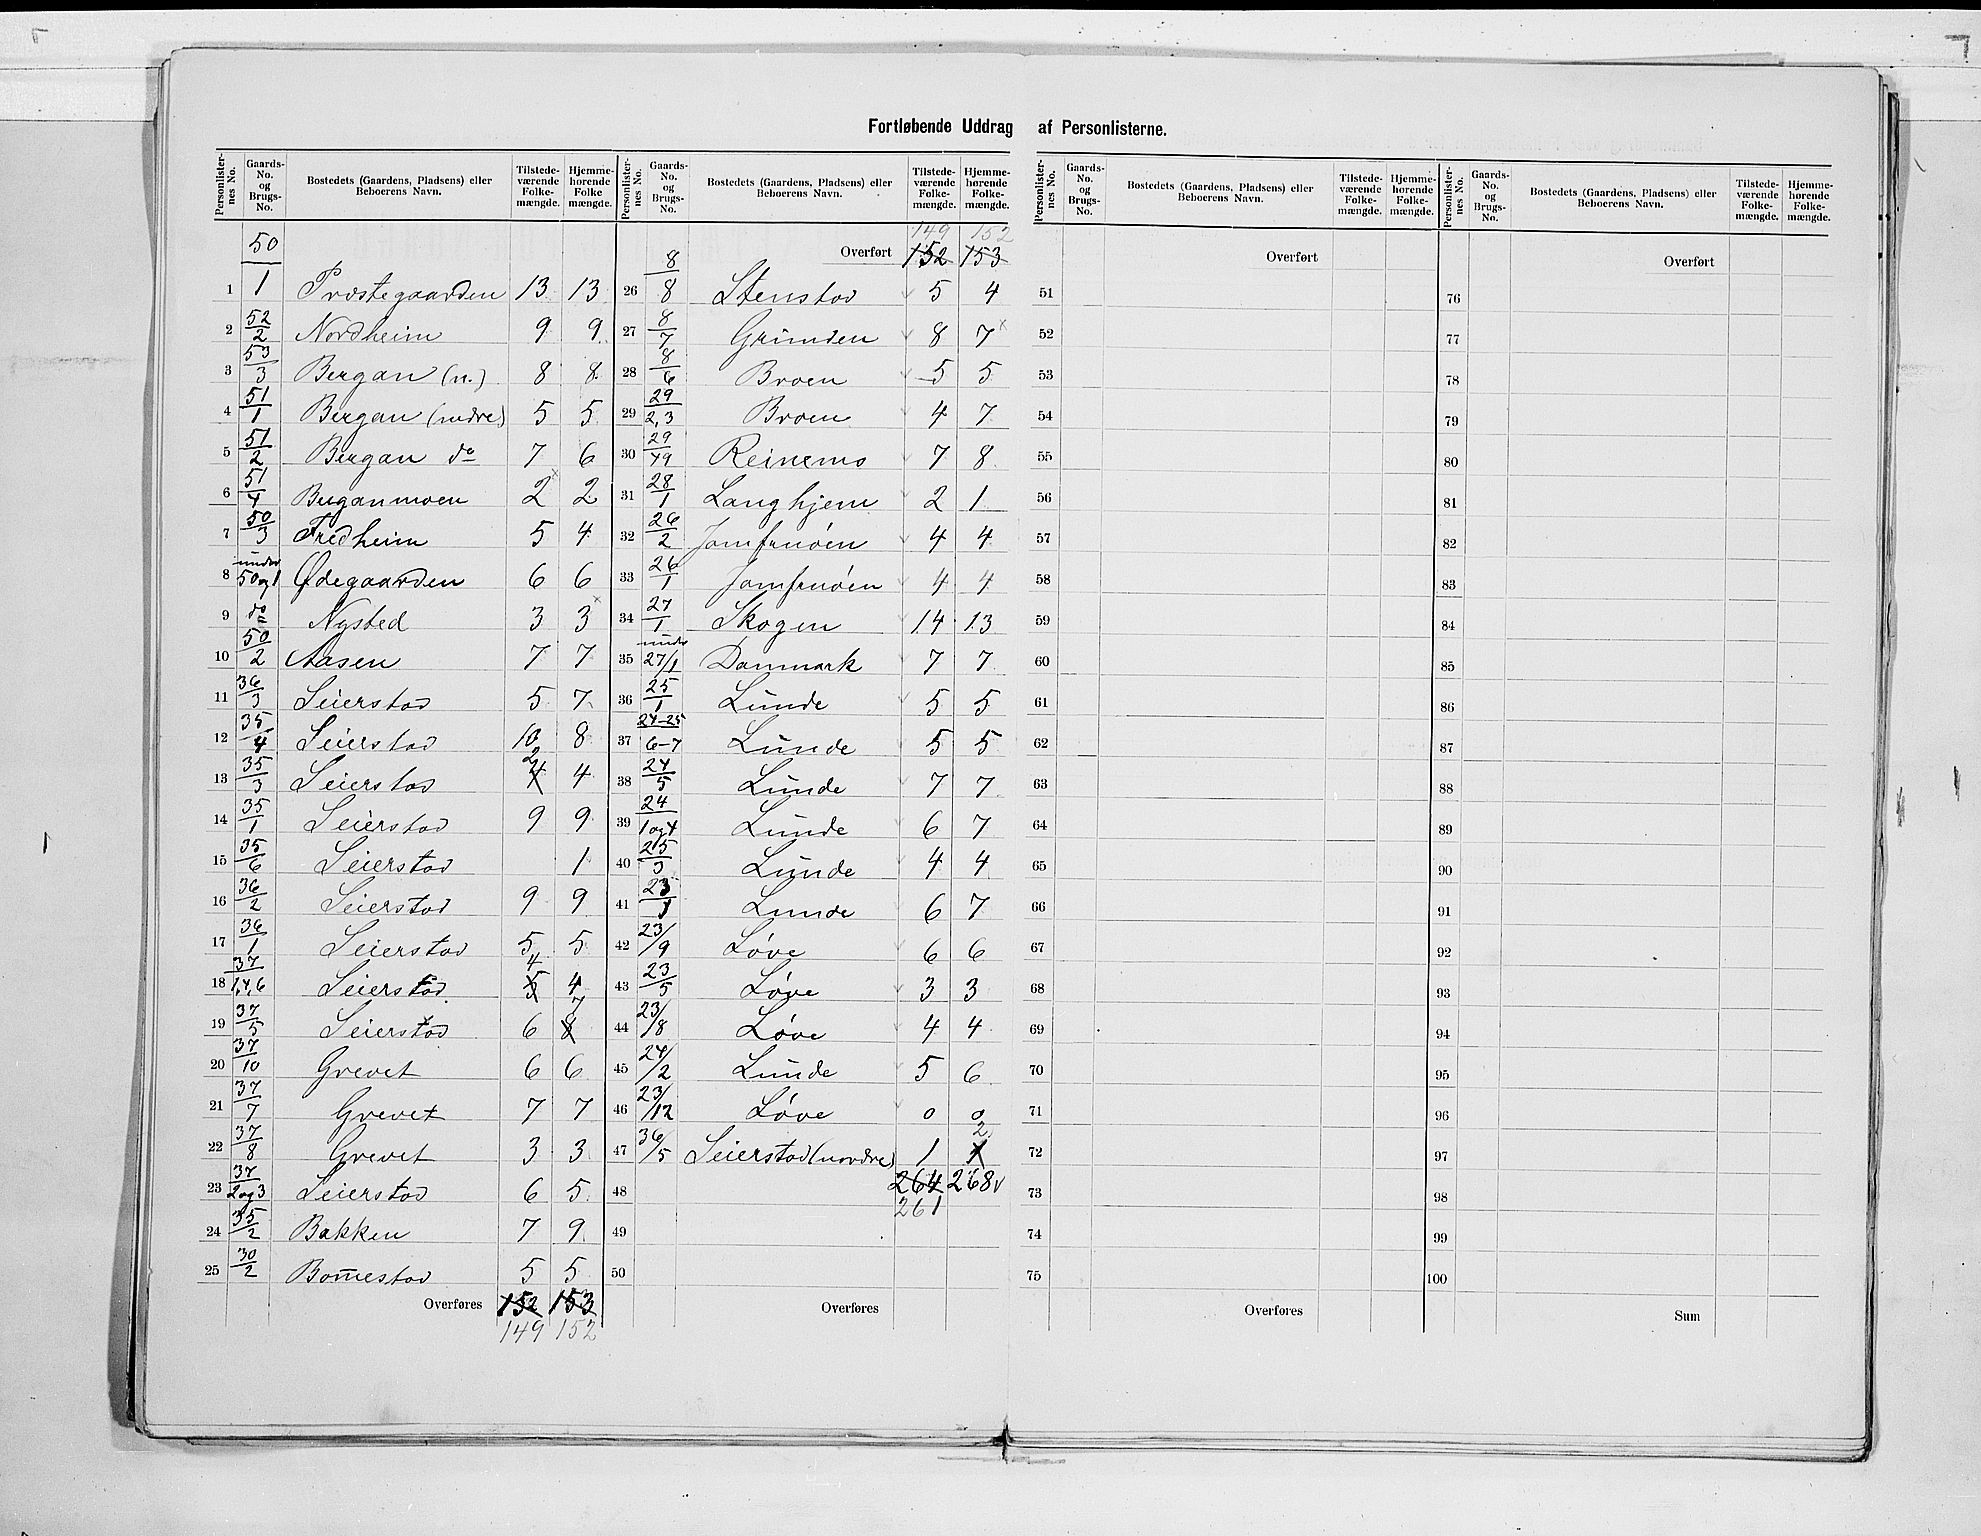 Fortløbende Uddrag af Personlisterne.
Personlister-nes No. Gaards-No. og Brugs-No. Bostedets (Gaardens, Pladsens) eller Beboerens Navn. Tilstede-værende Folke-mængde. Hjemme-hørende Folke mængde.
1 50/1 Præstegaarden 13 13
2 52/2 Nordheim 9 9
3 53/3 Bergan (n.) 8 8
4 51/1 Bergan (nedre) 5 5
5 51/2 Bergan do 7 6
6 51/4 Berganmoen 2 2
7 50/3 Fredheim 5 4
8 under 50 og 1 Ødegaarden 6 6
9 do Nysted 3 3
10 50/2 Aasen 7 7
11 36/3 Seierstad 5 7
12 35/4 Seierstad 10 8
13 35/3 Seierstad 4 2 4
14 35/1 Seierstad 9 9
15 35/6 Seierstad 1
16 36/2 Seierstad 9 9
17 36/1 Seierstad 5 5
18 37/1,4,6 Seierstad 5 4 4
19 37/5 Seierstad 6 8 7
20 37/10 Grevet 6 6
21 37/7 Grevet 7 7
22 37/8 Grevet 3 3
23 37/2 og 3 Seierstad 6 5
24 35/2 Bakken 7 9
25 30/2 Bomestad 5 5
Overføres 152 153
149 152
Personlister-nes No. Gaards-No. og Brugs-No. Bostedets (Gaardens, Pladsens) eller Beboerens Navn. Tilstede-værende Folke-mængde. Hjemme-hørende Folke-mængde.
149 152
Overført 152 153
26 8/8 Stenstad 5 4
27 8/7 Grinden 8 7
28 8/6 Broen 5 5
29 29/2,3 Broen 4 7
30 29/49 Reinemo 7 8
31 28/1 Langhjem 2 1
32 26/2 Jomfruöen 4 4
33 26/1 Jomfruöen 4 4
34 27/1 Skogen 14 13
35 under 27/1 Danmark 7 7
36 25/1 Lunde 5 5
37 24-25/6-7 Lunde 5 5
38 24/5 Lunde 7 7
39 24/1 og 4 Lunde 6 7
40 25/3 Lunde 4 4
41 23/1 Lunde 6 7
42 23/9 Løve 6 6
43 23/5 Løve 3 3
44 23/8 Løve 4 4
45 24/2 Lunde 5 6
46 23/12 Løve 0 0
47 36/5 Seierstad (nordre) 1 1 2
48 264 268
261
49
50
Overføres
Personlister-nes No. Gaards-No. og Brugs-No. Bostedets (Gaardens, Pladsens) eller Beboerens Navn. Tilstede-værende Folke-mængde. Hjemme-hørende Folke-mængde.
Overført
51
52
53
54
55
56
57
58
59
60
61
62
63
64
65
66
67
68
69
70
71
72
73
74
75
Overføres
Personlister-nes No. Gaards-No. og Brugs-No. Bostedets (Gaardens, Pladsens) eller Beboerens Navn. Tilstede-værende Folke-mængde. Hjemme-hørende Folke-mængde.
Overført
76
77
78
79
80
81
82
83
84
85
86
87
88
89
90
91
92
93
94
95
96
97
98
99
100
Sum